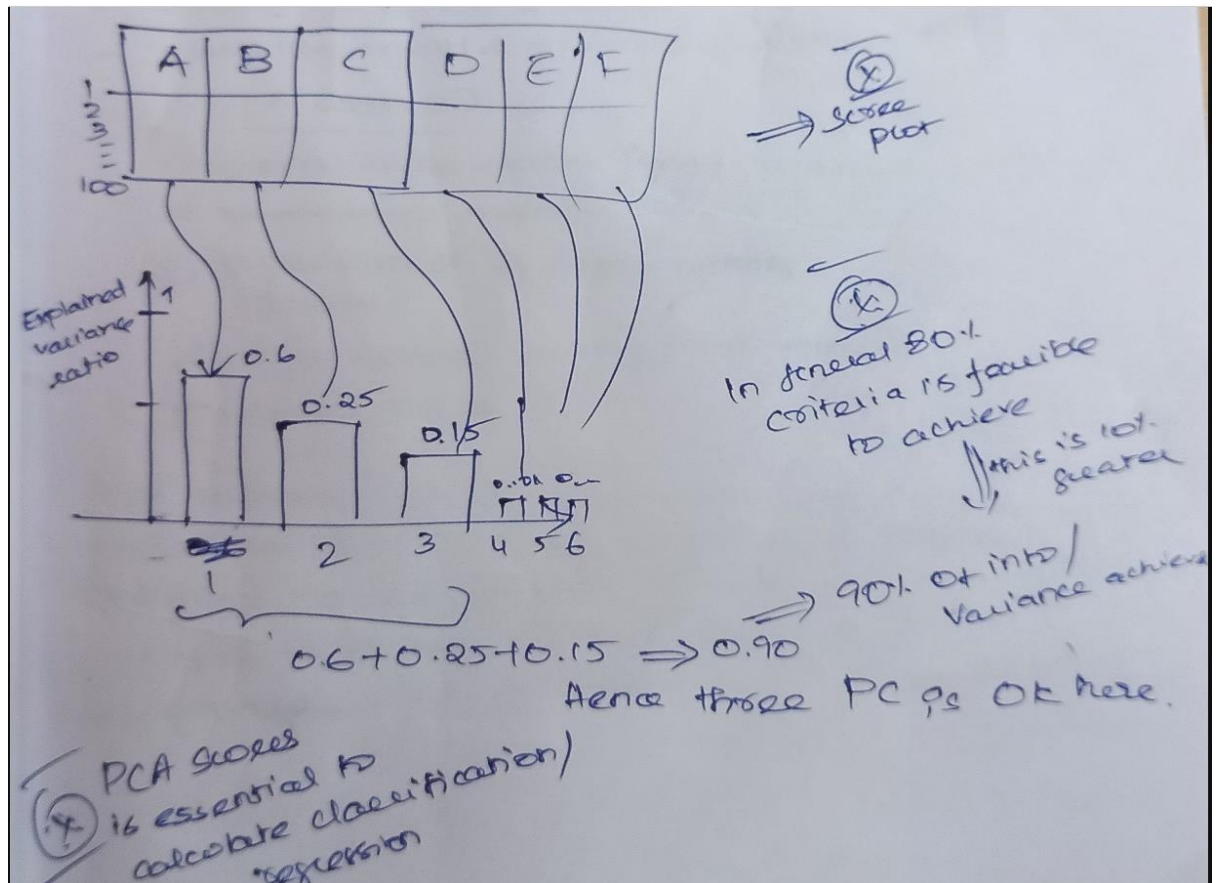 A B C D E F
1
2
3
100
scree
plot
Explained
variance
ratio
1
0.6
0.25
0.15
1 2 3 4 5 6
In general 80%
criteria is feasible
to achieve
this is 10%
greater
90% of info/
Variance achieve
0.6+0.25+0.15 ⇒ 0.90
Hence three PC is OK here.
PCA scores
is essential to
calculate classification/
regression